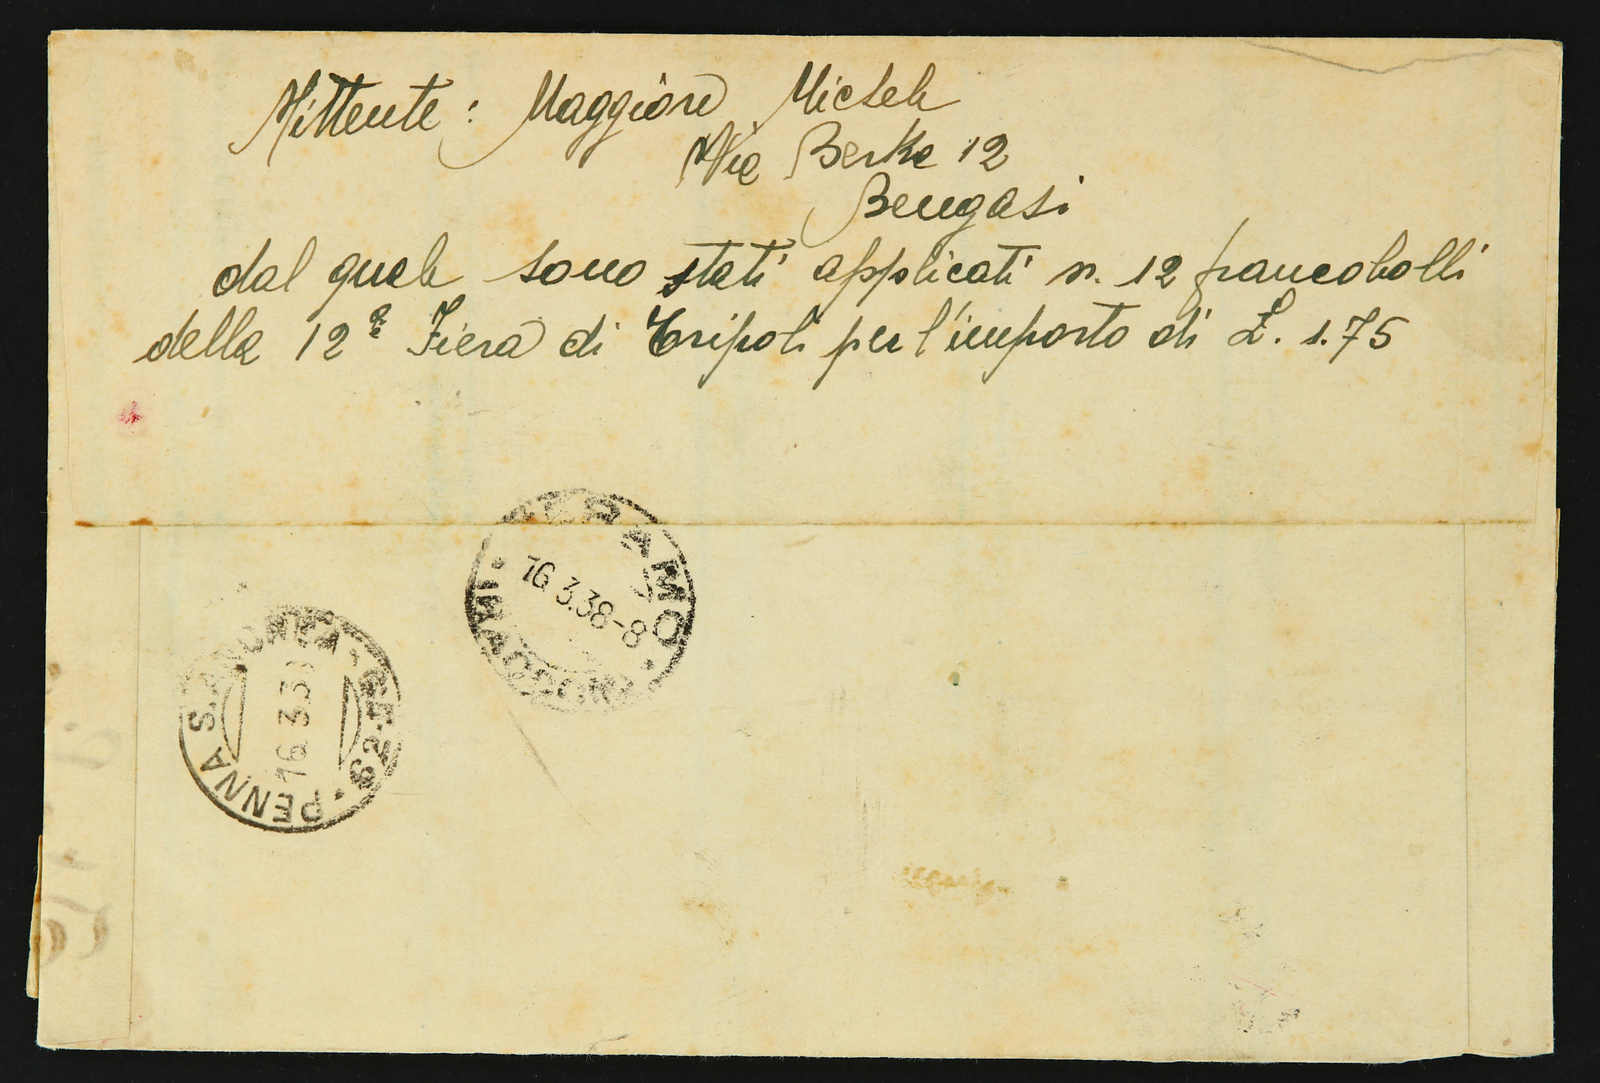 Mittente: Maggiore Michele
Via Berka 12
Bengasi
dal quale sono stati applicati n. 12 francobolli
della 12ª Fiera di Tripoli per l'importo di L. 1.75
TERAMO
16.3.38-8
PENNA S. ANDREA
16.3.3